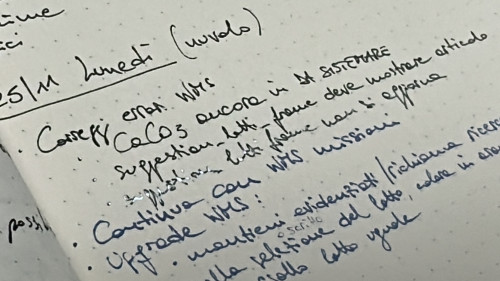 25/11 lunedì (nuvolo)
• Correggi errori WMS
• CaCO3 ancora in DA SISTEMARE
• suggestion_lotti_frame deve mostrare articolo
• suggestion lotti frame non si aggiorna
• Continua con WMS missioni
• Upgrade WMS:
• mantieni evidenziati/richiama
scritto
selezione del lotto, colore in
giallo lotto uguale